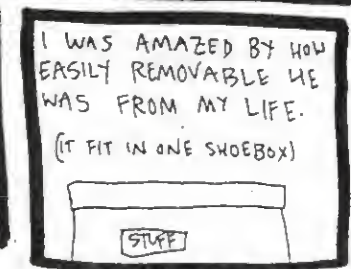 I WAS AMAZED BY HOW
EASILY REMOVABLE HE
WAS FROM MY LIFE.
(IT FIT IN ONE SHOEBOX)
STUFF